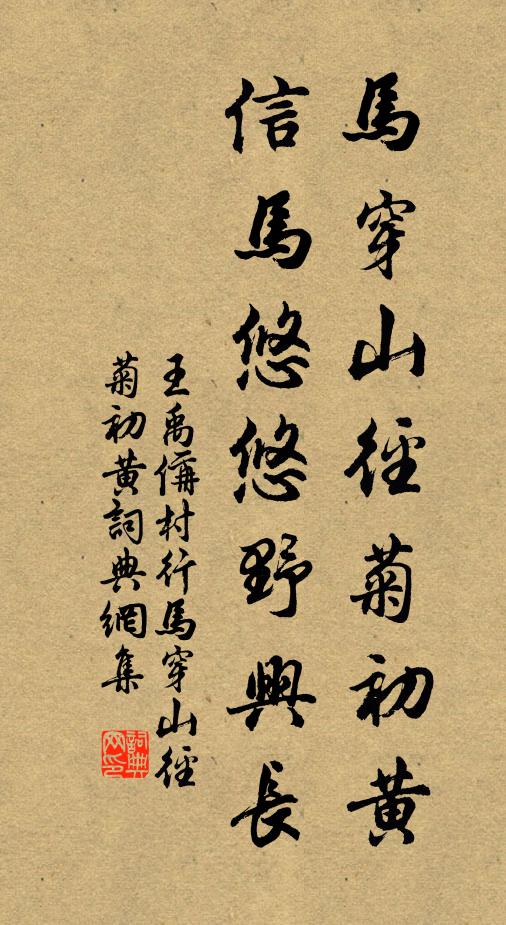 馬穿山徑菊初黃
信馬悠悠野興長
王禹偁村行馬穿山徑
菊初黃詞典網集
詞典
网印